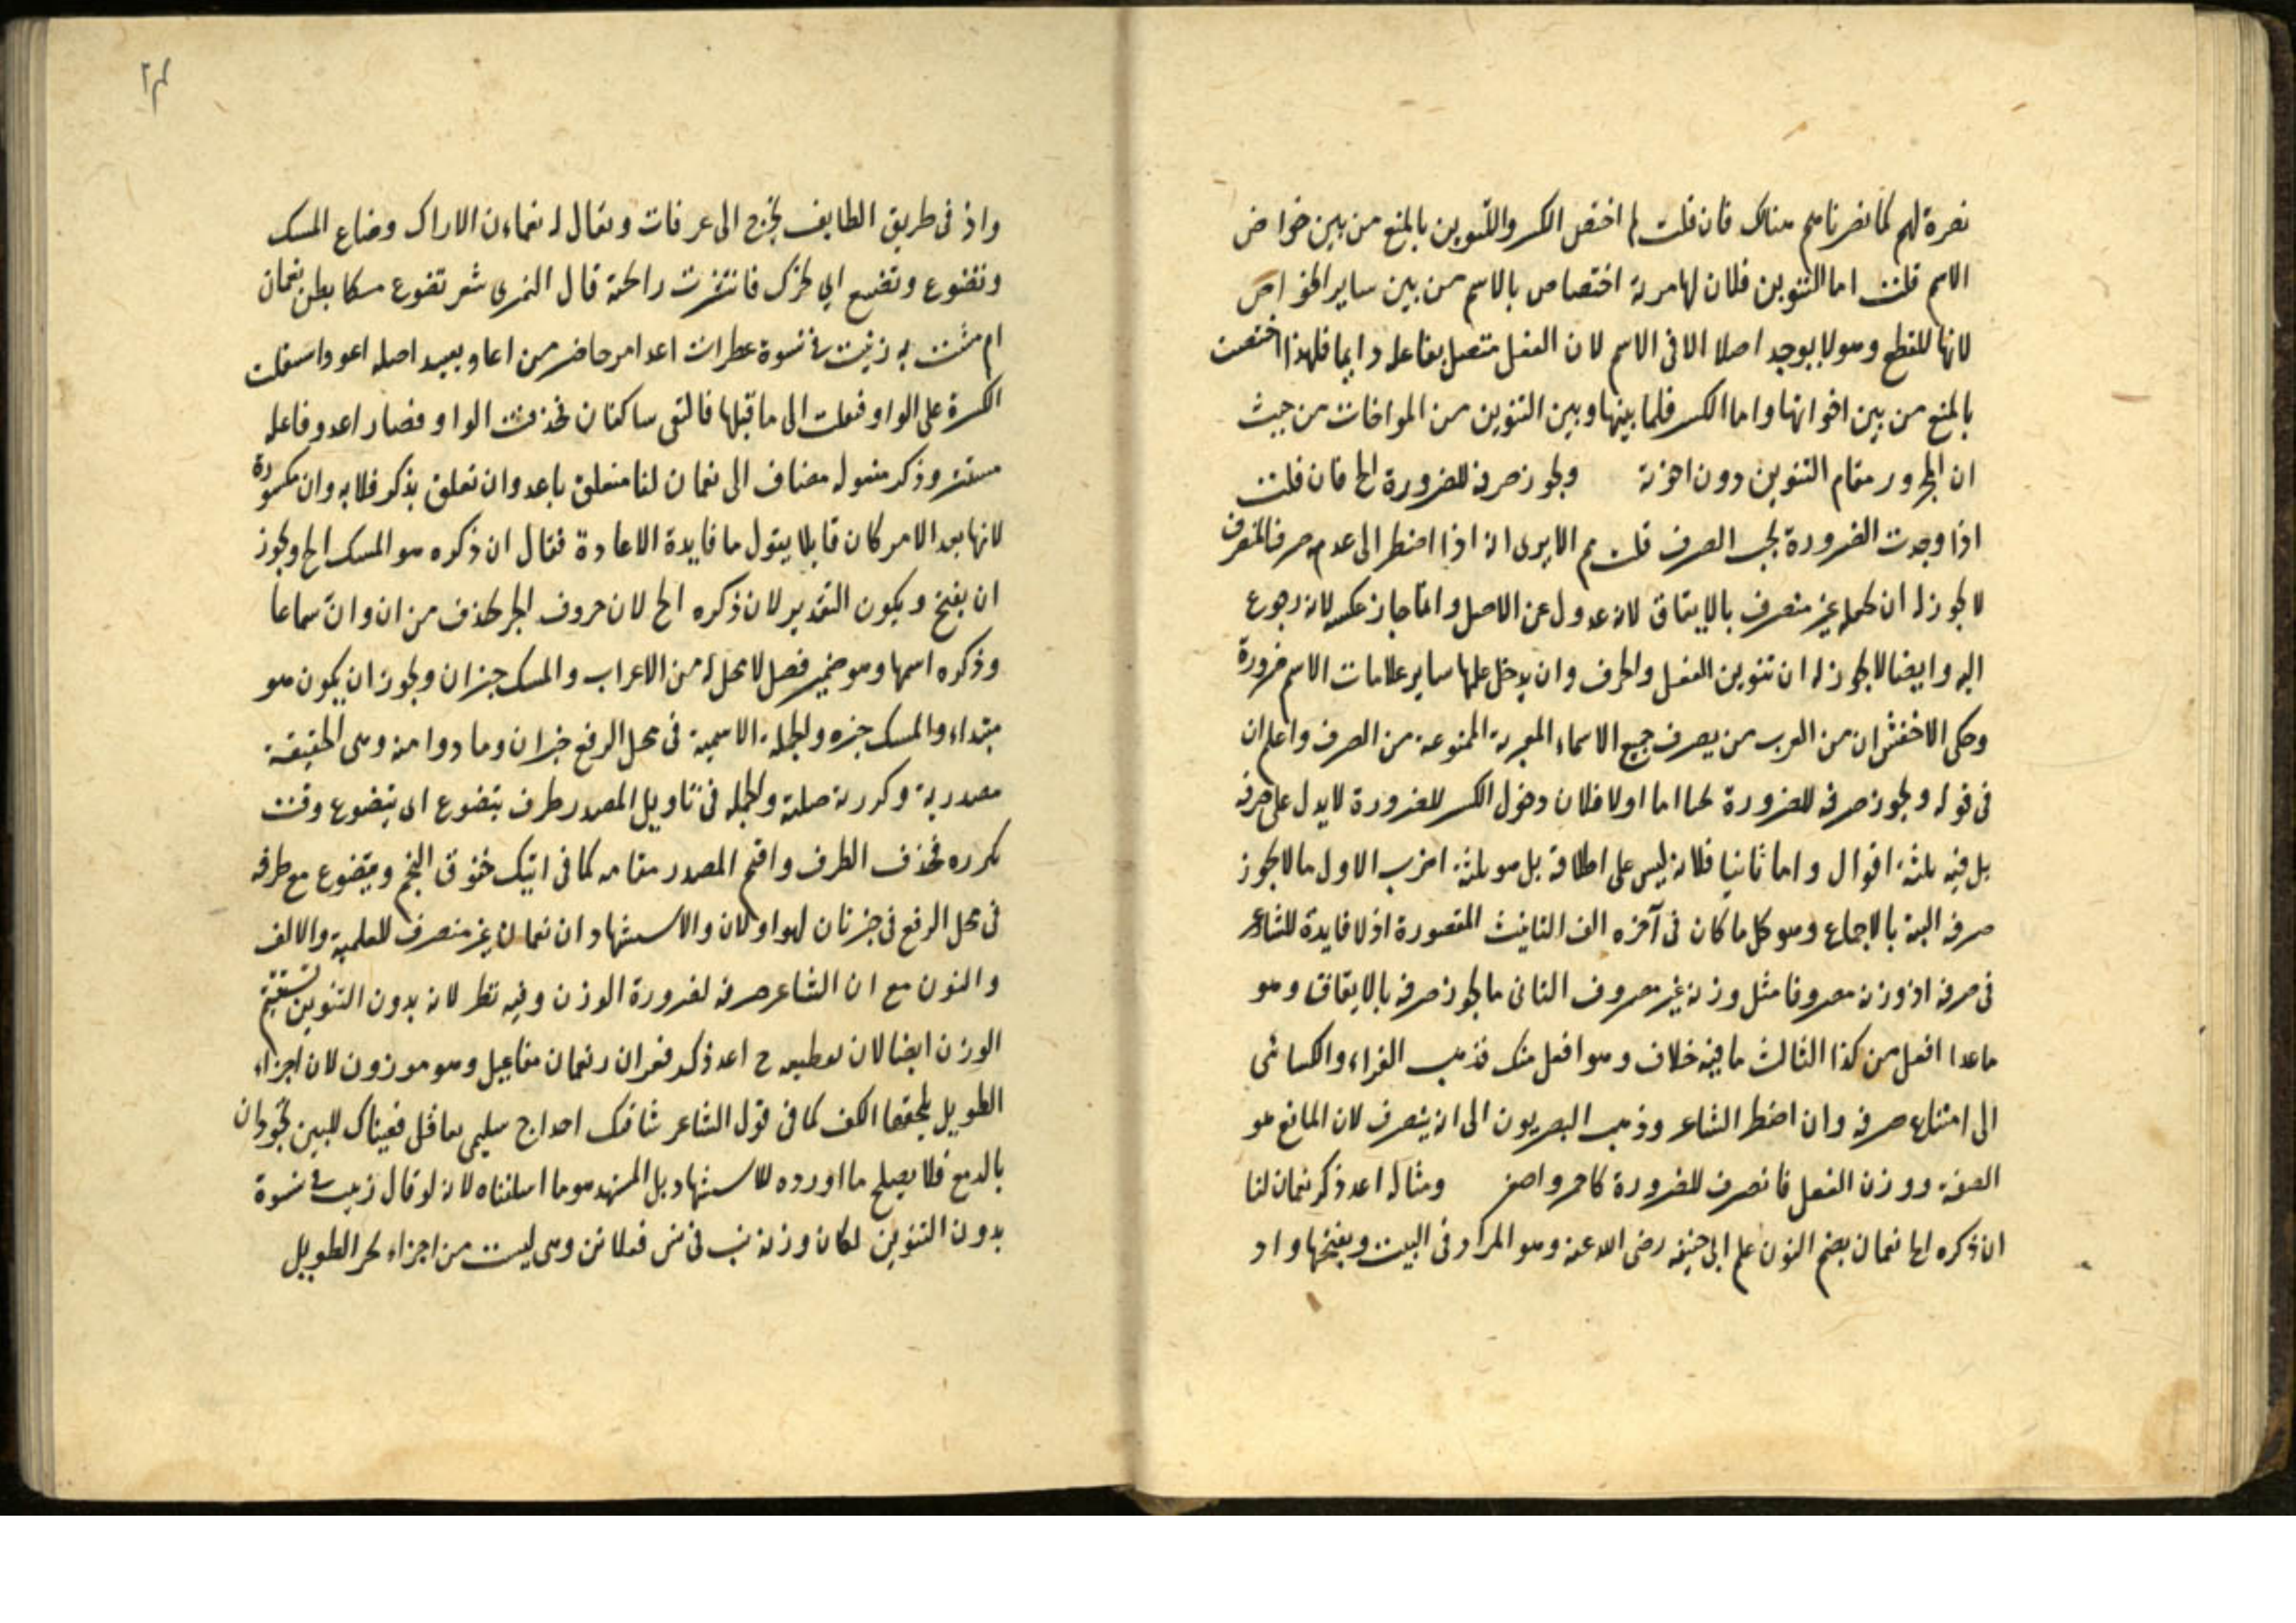 نصرة لهم كما نصرناهم هناك فان قلت لم اختص الكسر والتنوين بالمنع من بين خواص
الاسم قلت اما التنوين فلان لها مزية اختصاص بالاسم من بين ساير الخواص
لانها للقطع وهو لا يوجد اصلا الا في الاسم لان الفعل متصل بفاعله دايما فلهذا اختصت
بالمنع من بين اخواتها واما الكسر فلما بينها وبين التنوين من المواخات من حيث
ان المجرور مقام التنوين دون اخوته ويجوز صرفه للضرورة الخ فان قلت
اذا وجدت الضرورة يجب الصرف قلت الا يرى انه اذا اضطر الى عدم صرف المنصرف
لا يجوز له ان يجعله غير منصرف بالاتفاق لانه عدول عن الاصل وانما جاز عكسه لانه رجوع
اليه وايضا لا يجوز له ان تنوين الفعل والحرف وان يدخل عليها ساير علامات الاسم ضرورة
وحكى الاخفش ان من العرب من يصرف جميع الاسماء المعربة الممنوعة من الصرف واعلم ان
في قوله ويجوز صرفه للضرورة اما اولا فلان دخول الكسر للضرورة لا يدل على صرفه
بل فيه ثلثة اقوال واما ثانيا فلانه ليس على اطلاقه بل هو ثلثة اضرب الاول ما لا يجوز
صرفه البتة بالاجماع وهو كل ما كان في آخره الف التانيث المقصورة اذ لا فايدة للشاعر
في صرفه اذ وزنه مصروفا مثل وزنه غير مصروف الثاني ما يجوز صرفه بالاتفاق وهو
ماعدا افعل من كذا الثالث ما فيه خلاف وهو افعل منك فذهب الفراء والكسائى
الى امتناع صرفه وان اضطر الشاعر وذهب البصريون الى انه ينصرف لان المانع هو
الصفة ووزن الفعل فانصرف للضرورة كاحمر واصفر ومثاله اعد ذكر نعمان لنا
ان ذكره الخ نعمان بضم النون علم ابي حنيفة رضى الله عنه وهو المراد في البيت وبفتحها واد
واد في طريق الطايف يخرج الى عرفات ويقال له نعمان الاراك وضاع المسك
وتضوع وتضيع اي تحرك فانتشرت رائحته قال النمرى شعر تضوع مسكا بطن نعمان
ان مشت به زينب في نسوة عطرات اعد امر حاضر من اعاد يعيد اصله اعود استثقلت
الكسرة على الواو فنقلت الى ما قبلها فالتقى ساكنان فحذفت الواو فصار اعد وفاعله
مستتر وذكر مفعوله مضاف الى نعمان لنا متعلق باعد وان تعلق بذكر فلا به وان مكسورة
لانها بعد الامر كان قايلا يقول ما فايدة الاعادة فقال ان ذكره هو المسك الخ ويجوز
ان يفتح ويكون التقدير لان ذكره الخ لان حروف الجر يحذف من ان وان سماعا
وذكره اسمها وهو ضمير فصل لا محل له من الاعراب والمسك خبر ان ويجوز ان يكون هو
مبتداء والمسك خبره والجملة الاسمية في محل الرفع خبر ان وما دوامنه وهى الحقيقة
مصدرية وكررته صلته والجملة في تاويل المصدر ظرف يتضوع اى يتضوع وقت
تكرره فحذف الظرف واقيم المصدر مقامه كما في اتيك خفوق النجم ويتضوع مع ظرفه
في محل الرفع خبر ثان لهو او لان والاستشهاد ان نعمان غير منصرف للعلمية والالف
والنون مع ان الشاعر صرفه لضرورة الوزن وفيه نظر لانه بدون التنوين يستقيم
الوزن ايضا لان تقطيعه ح اعد ذكر فعولن رنعمان مفاعيل وهو موزون لان اجزاء
الطويل يلحقها الكف كما في قول الشاعر شاقتك احداج سليمى بعاقل فعيناك للبين تجودان
بالدمع فلا يصلح ما اورده للاستشهاد بل المستشهد هو ما اسلفناه لانه لو قال زينب في نسوة
بدون التنوين لكان وزنه نب في نس فعلاتن وهى ليست من اجزاء بحر الطويل